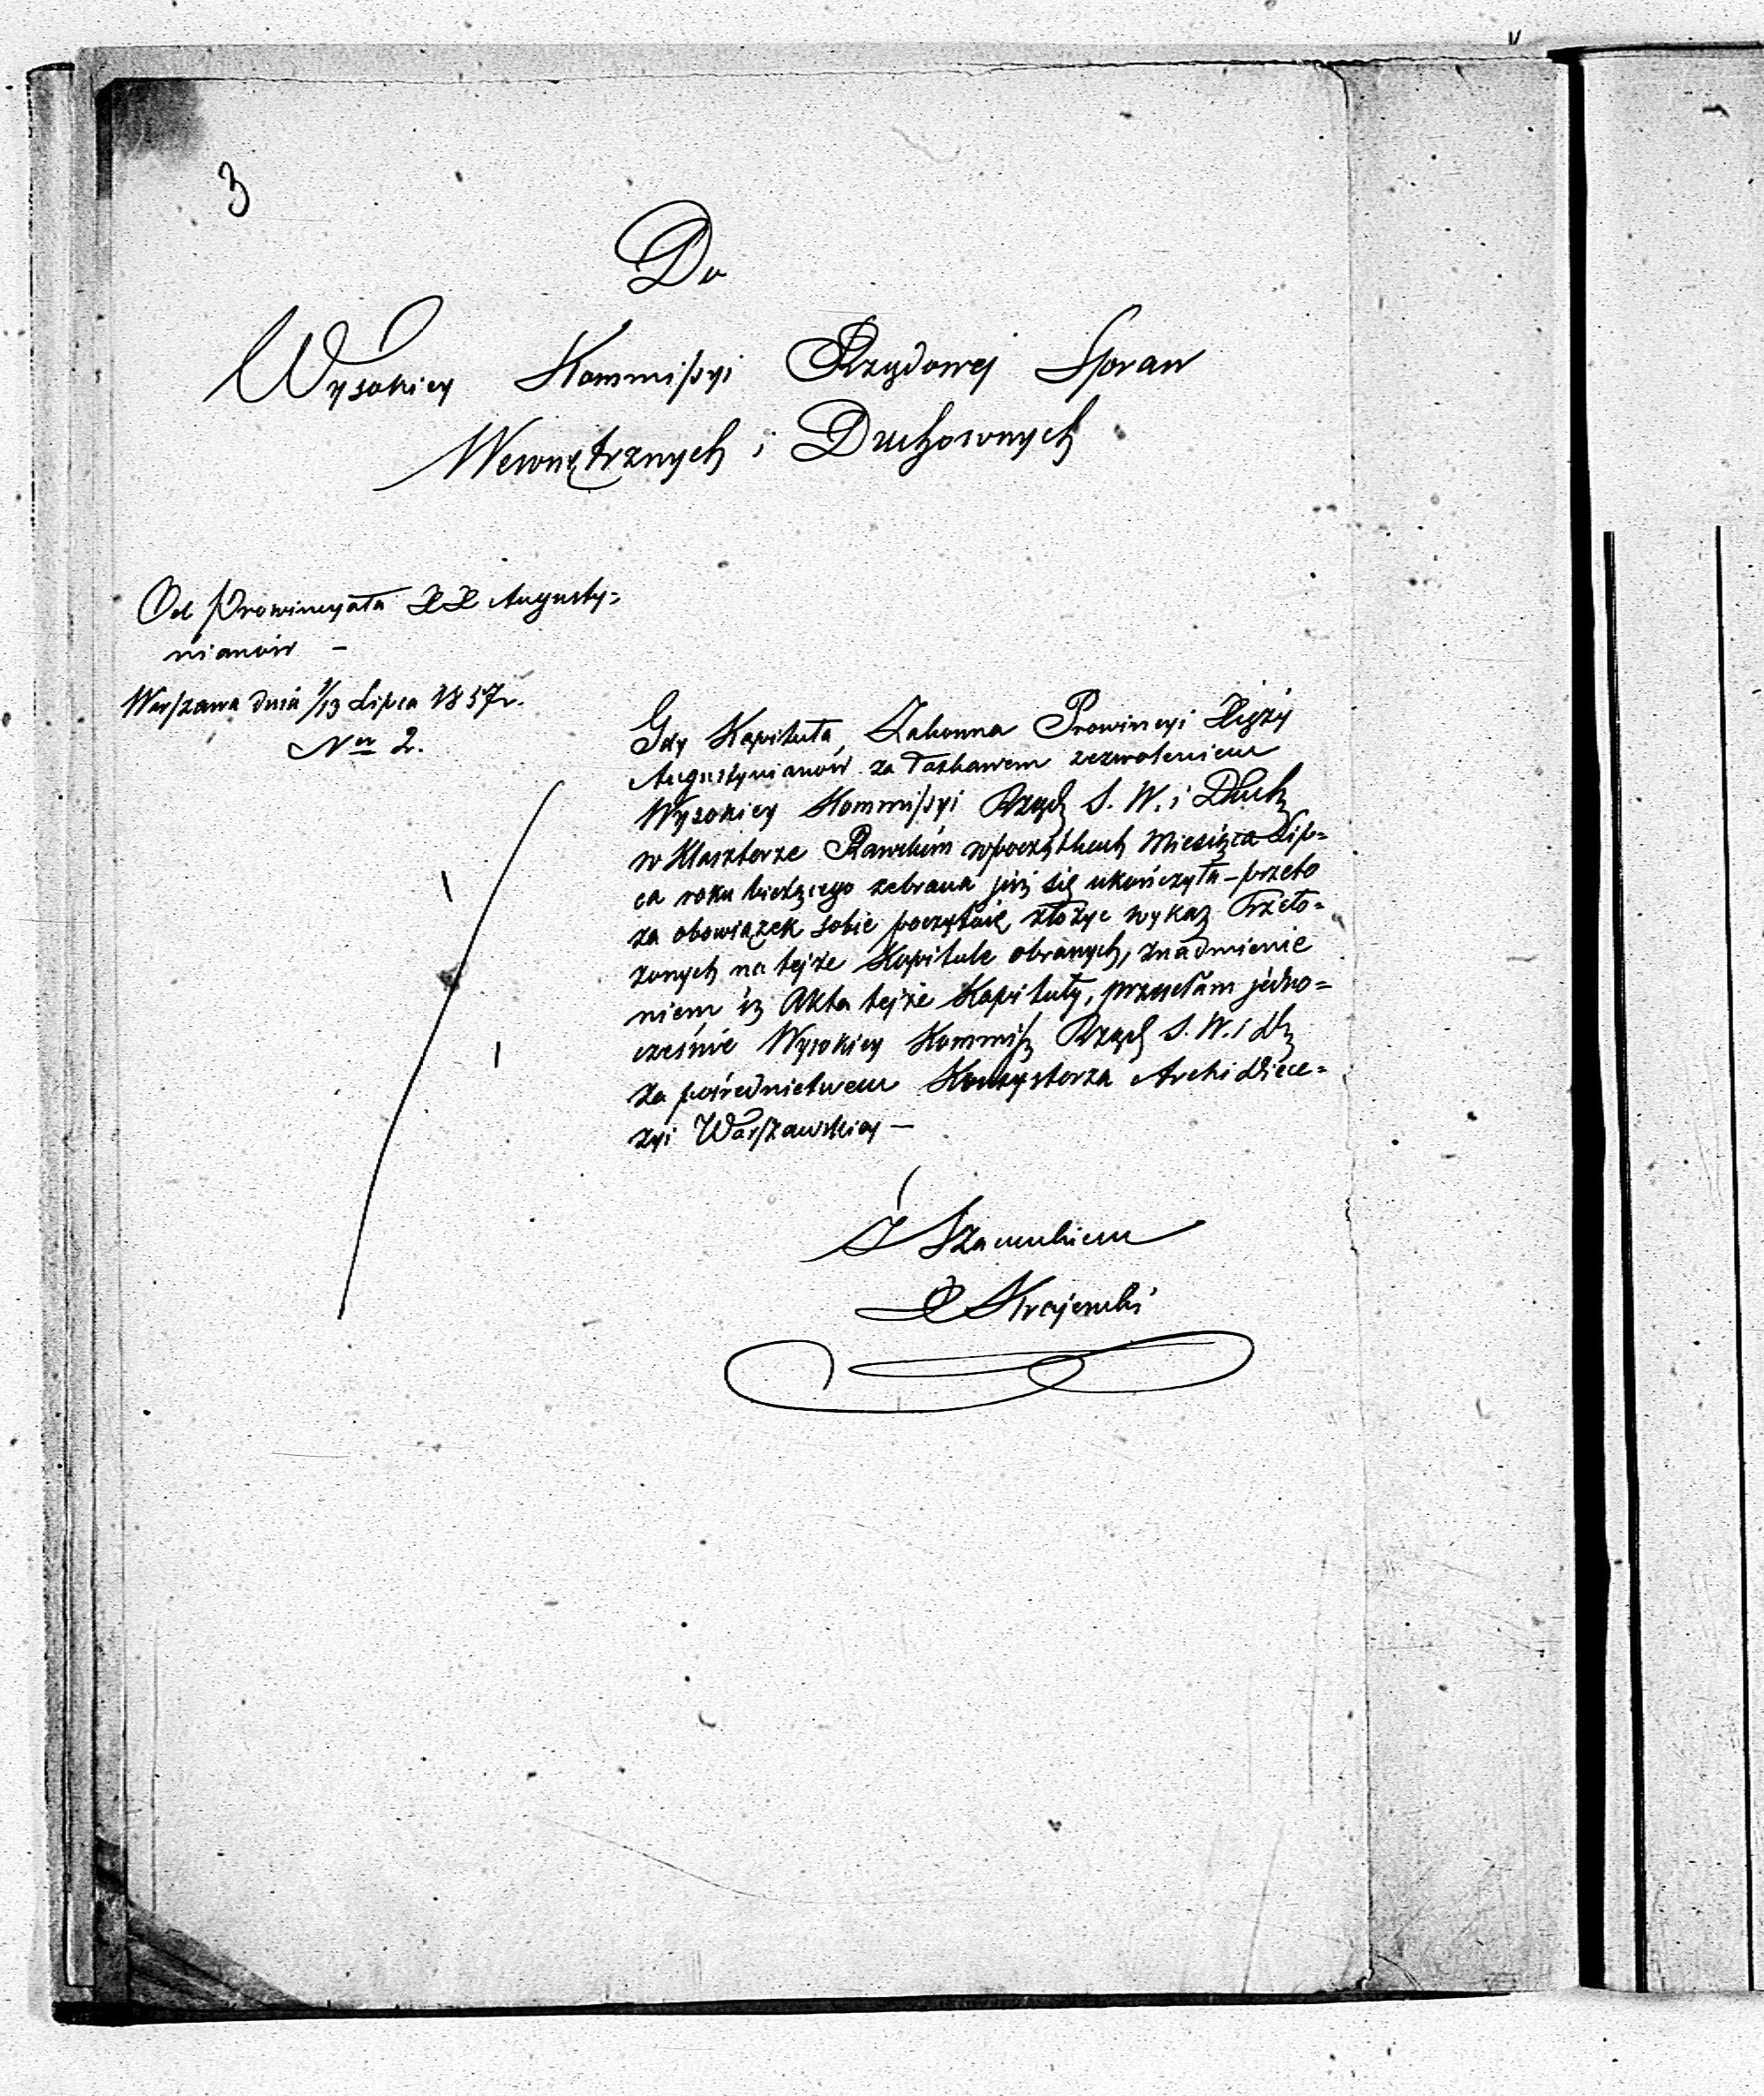 3
Do
Wysokiey Kommissyi Rządowej Spraw
Wewnętrznych i Duchownych
Od Prowincyała XX Augusty=
nianów —
Warszawa dnia 1/13 Lipca 1857 r.
Nr 2.
Gdy Kapituła Zakonna Prowincyi Xięży
Augustynianów za łaskawem zezwoleniem
Wysokiey Kommissyi Rząd S. W. i Duch
w Klasztorze Rawskim w początkach Miesiąca Lip=
ca roku bieżącego zebrana już się ukończyła — przeto
za obowiązek sobie poczytuię złożyc wykaz Przeło=
żonych na tejże Kapitule obranych, z nadmienie
niem iż Akta tejże Kapituły, przesełam jedno=
cześnie Wysokiey Kommiss Rząd S. W. i D
za pośrednictwem Konsystorza Archidiece=
zyi Warszawskiey —
Z Szacunkiem
Krajewski